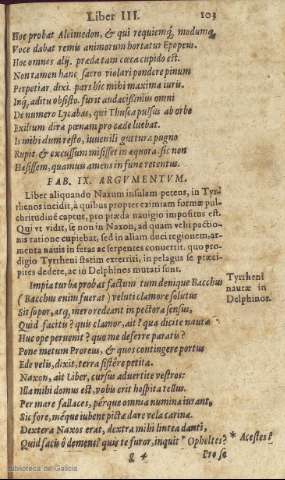 Liber III. 103
Hoc probat Alcimedon, & qui requiemq́, modumq́
Voce dabat remis animorum hortator Epopeus.
Hoc omnes alij. prædæ tam cæca cupido est.
Non tamen hanc sacro violari pondere pinum
Perpetiar, dixi. pars hîc mihi maxima iuris.
Inq́, aditu obsisto. furit audacissimus omni
De numero Lycabas, qui Thusca pulsus ab vrbe
Exilium dira pœnam pro cæde luebat.
Is mihi dum resto, iuuenili guttura pugno
Rupit, & excussum misisset in æquora, si non
Hæsissem, quamuis amens in fune retentus.
FAB. IX. ARGVMENTVM.
Liber aliquando Naxum insulam petens, in Tyr-
rhenos incidit, à quibus propter eximiam formæ pul-
chritudinē captus, pro præda nauigio impositus est.
Qui vt vidit, se non in Naxon, ad quam velis pactio-
nis ratione cupiebat, sed in aliam duci regionem, ar-
menta nauis in feras ac serpentes conuertit. quo pro-
digio Tyrrheni æstim exterriti, in pelagus se præci-
pites dedere, ac in Delphinos mutati sunt.
Tyrrheni
nautæ in
Delphinos.
Impia turba probat factum tum denique Bacchus
(Bacchus enim fuerat) veluti clamore solutus
Sit sopor, atq́, mero redeant in pectora sensus,
Quid facitis? quis clamor, ait? qua dicite nautæ
Huc ope perueni? quo me deferre paratis?
Pone metum Proreus, & quos contingere portus
Ede velis, dixit. terra sistêre petita.
Naxon, ait Liber, cursus aduertite vestros:
Illa mihi domus est, vobis erit hospita tellus.
Per mare fallaces, pérque omnia numina iurant,
Sic fore, méque iubent pictæ dare vela carinæ.
Dextera Naxos erat, dextra mihi lintea danti,
Quid facis ô demens? quis te furor, inquit * Opheltes? * Acestes
& 4
Pro se
Biblioteca de Galicia